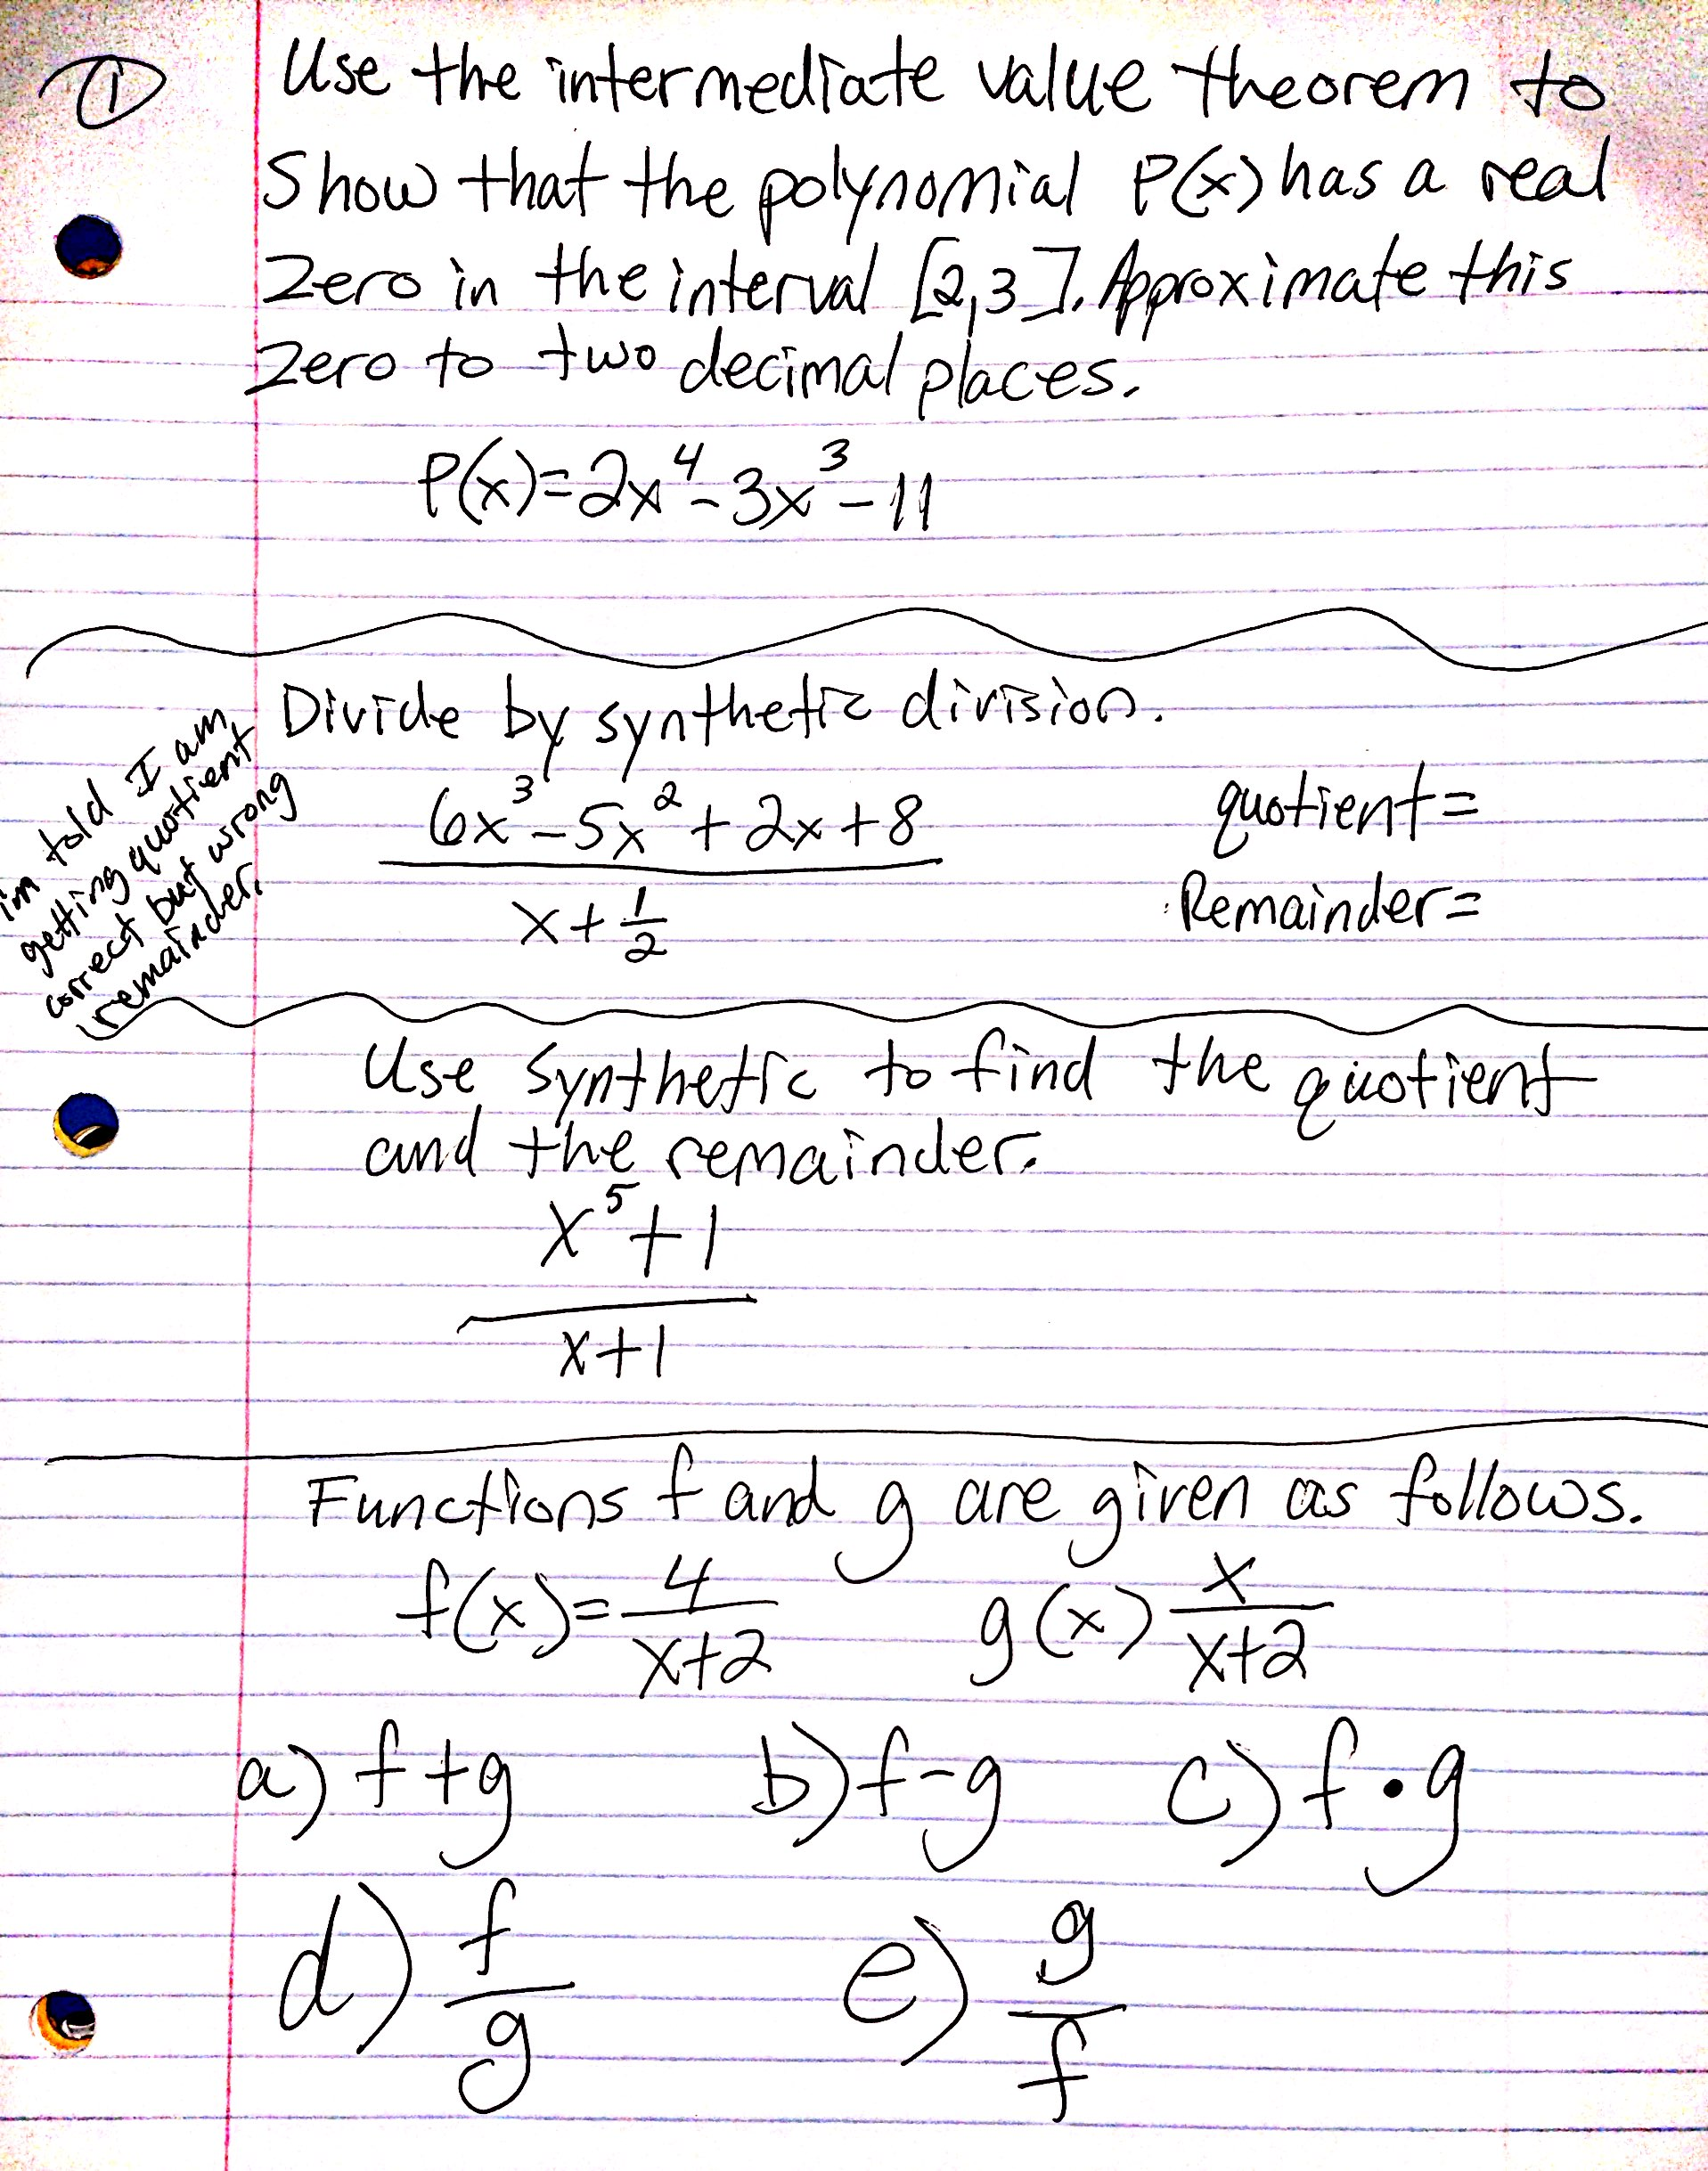 ① Use the intermediate value theorem to
Show that the polynomial P(x) has a real
Zero in the interval [2,3]. Approximate this
Zero to two decimal places.
P(x)=2x⁴-3x³-11
Divide by synthetic division.
im told I am
getting quotient
correct but wrong
remainder.
6x³-5x²+2x+8
x+1/2
quotient=
Remainder=
Use synthetic to find the quotient
and the remainder.
x⁵+1
x+1
Functions f and g are given as follows.
f(x)=4/x+2 g(x) x/x+2
a) f+g b) f-g c) f•g
d) f/g e) g/f